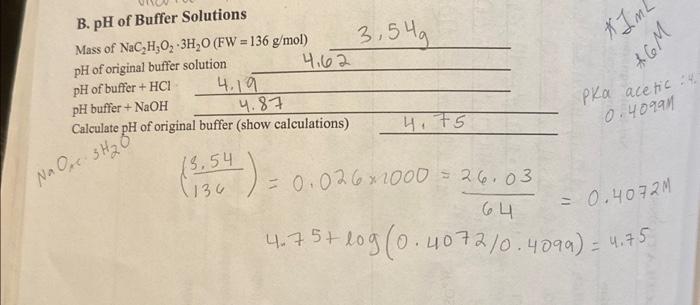 B. pH of Buffer Solutions
Mass of NaC₂H₃O₂·3H₂O (FW = 136 g/mol) 3.54g
pH of original buffer solution 4.62
pH of buffer + HCl 4.19
pH buffer + NaOH 4.87
Calculate pH of original buffer (show calculations) 4.75
*1mL
*6M
PKa acetic : 4.
0.4099M
NaOAc·3H₂O
(3.54/136) = 0.026×1000 = 26.03/64 = 0.4072M
4.75+log(0.4072/0.4099) = 4.75